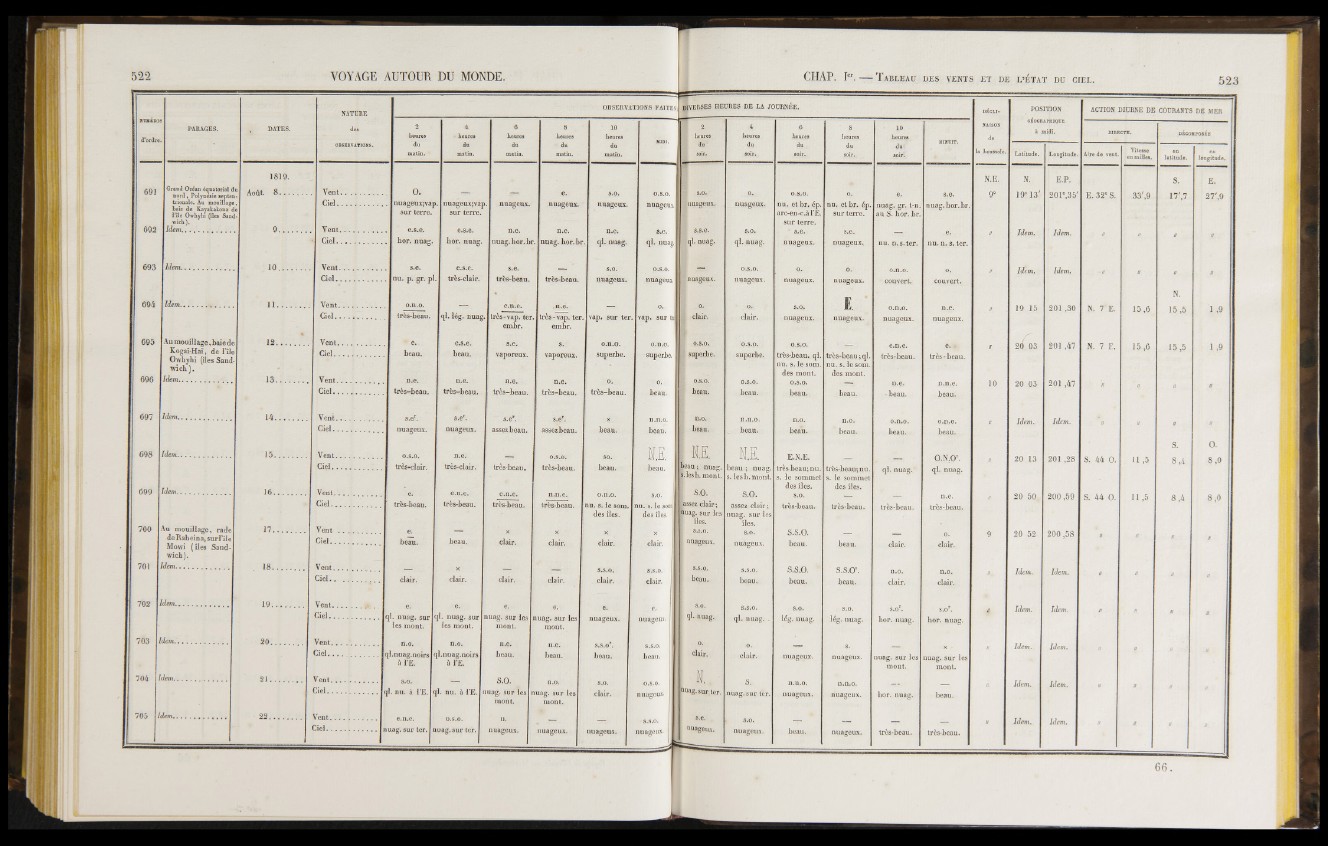 522
VOYAGE AUTOUR DU MONDE.
CHAP. Ier. — TABLEAU DES VENTS ET DE L'ÉTAT DU CIEL.
523
NUMÉROS d'ordre.
PARAGES.
DATES.
NATURE des OBSERVATIONS.
OBSERVATIONS FAITES
DIVERSES HEURES DE LA JOURNÉE.
2 heures du matin.
4 heures du matin.
6 heures du matin.
8 heures du matin.
10 heures du matin.
MIDI.
2 heures du soir.
4 heures du soir.
6 heures du soir.
8 heures du soir.
10 heures du soir.
MINUIT.
DÉCLINAISON de la boussole.
POSITION GÉOGRAPHIQUE à midi.
Latitude. Longitude.
ACTION DIURNE DE COURANTS DE MER
DIRECTE. DÉCOMPOSÉE
Aire de vent. Vitesse en milles. en latitude. en longitude.
1819. N.E. N. E.P. S. E.
691 Grand Océan équatorial du nord, Polynésie septentrionale. Au mouillage, baie de Kayakakoua de l'île Owhyhi (îles Sandwich). Août. 8
Vent O. — — e. s.o. o.s.o. s.o. o. o.s.o. o. e. s.e. 9° 19° 13' 201°,35' E. 32° S. 33',9 17',7 27',9
Ciel nuageux;vap. sur terre. nuageux;vap. sur terre. nuageux. nuageux. nuageux. nuageux. nuageux. nuageux. nu. et br. ép. arc-en-c.à l'E. sur terre. nu. et br. ép. sur terre. nuag. gr. t-n. au S. hor. br. nuag.hor.br.
692 Idem 9
Vent e.s.e. e.s.e. n.e. n.e. n.e. s.e. s.s.e. s.o. s.e. s.e. — e. Idem. Idem.
Ciel hor. nuag. hor. nuag. nuag.hor.br. nuag.hor.br. ql. nuag. ql. nuag. ql. nuag. ql. nuag. nuageux. nuageux. nu. n.s.ter. nu. n. s. ter.
693 Idem 10
Vent s.e. e.s.e. s.e. — s.o. o.s.o. — o.s.o. o. o. o.n.o. o. Idem. Idem.
Ciel nu. p. gr. pl. très-clair. très-beau. très-beau. nuageux. nuageux nuageux. nuageux. nuageux. nuageux. couvert. couvert.
N.
694 Idem 11
Vent o.n.o. — e.n.e. n.e. — o. o. o. s.o. E. o.n.o. n.e. 19 15 201,30 N. 7 E. 15,6 15,5 1,9
Ciel très-beau. ql. lég. nuag. très-vap. ter. embr. très-vap. ter. embr. vap. sur ter. vap. sur te clair. clair. nuageux. nuageux. nuageux. nuageux.
695 Au mouillage, baie de Kogai-Hai, de l'île Owhyhi (îles Sandwich). 12
Vent e. e.s.e. s.e. s. o.n.o. o.n.o. o.s.o. o.s.o. o.s.o. — e.n.e. e. 20 03 201,47 N. 7 E. 15,6 15,5 1,9
Ciel beau. beau. vaporeux. vaporeux. superbe. superbe. superbe. superbe. très-beau. ql. nu. s. le som. des mont. très-beau;ql. nu. s. le som. des mont. très-beau. très-beau.
696 Idem 13
Vent n.e. n.e. n.e. n.e. o. o. o.s.o. o.s.o. o.s.o. — n.e. n.n.e. 10 20 03 201,47
Ciel très-beau. très-beau. très-beau. très-beau. très-beau. beau. beau. beau. beau. beau. beau. beau.
697 Idem 14
Vent s.er. s.er. s.er. s.er. × n.n.o. n.o. n.n.o. n.o. n.o. o.n.o. e.n.e. Idem. Idem.
Ciel nuageux. nuageux. assez beau. assez beau. beau. beau. beau. beau. beau. beau. beau. beau.
S. O.
698 Idem 15
Vent o.s.o. n.e. — o.s.o. so. N.E. N.E. N.E. E.N.E. — — O.N.Or. 20 13 201,28 S. 44 O. 11,5 8,4 8,0
Ciel très-clair. très-clair. très-beau. très-beau. beau. beau. beau; nuag. s.lesh.mont. beau; nuag. s. les h. mont. très beau; nu. s. le sommet des îles. très-beau;nu. s. le sommet des îles. ql. nuag. ql. nuag.
699 Idem 16
Vent e. e.n.e. e.n.e. n.n.e. o.n.o. s.o. S.O. S.O. s.o. — — n.e. 20 50 200,59 S. 44 O. 11,5 8,4 8,0
Ciel très-beau. très-beau. très-beau. très-beau. nu. s. le som. des îles. nu. s. le som des îles assez clair; nuag. sur les îles. assez clair; nuag. sur les îles. très-beau. très-beau. très-beau. très-beau.
700 Au mouillage, rade de Raheina, sur l'île Mowi (îles Sandwich). 17
Vent e. — × × × × s.s.o. s.o. S.S.O. — — o. 9 20 52 200,58
Ciel beau. beau. clair. clair. clair. clair. nuageux. nuageux. beau. beau. clair. clair.
701 Idem 18
Vent — × — — s.s.o. s.s.o. s.s.o. s.s.o. S.S.O. S.S.Or. n.o. n.o. Idem. Idem.
Ciel clair. clair. clair. clair. clair. clair. beau. beau. beau. beau. clair. clair.
702 Idem 19
Vent e. e. e. e. s. e. s.e. s.s.o. s.o. s.o. s.or. s.or. Idem. Idem.
Ciel ql. nuag. sur les mont. ql. nuag. sur les mont. nuag. sur les mont. nuag. sur les mont. nuageux. nuageux ql. nuag. ql. nuag. lég. nuag. lég. nuag. hor. nuag. hor. nuag.
703 Idem 20
Vent n.e. n.e. n.e. n.e. s.s.or. s.s.o. o. o. — s. — × Idem. Idem.
Ciel ql.nuag.noirs à l'E. ql.nuag.noirs à l'E. beau. beau. beau. beau. clair. clair. nuageux. nuageux. nuag. sur les mont. nuag. sur les mont.
704 Idem 21
Vent s. — S.O. n.o. s.o. o.s.o. N. S. n.n.o. n.n.o. — — Idem. Idem.
Ciel ql. nu. à l'E. ql. nu. à l'E. nuag. sur les mont. nuag. sur les mont. clair. nuageux nuag.sur ter. nuag.sur ter. nuageux. nuageux. hor. nuag. beau.
705 Idem 22
Vent e.n.e. o.s.o. n. — — s.s.o. s.e. s.o. — — — — Idem. Idem.
Ciel nuag. sur ter. nuag. sur ter. nuageux. nuageux. nuageux. nuageux nuageux. nuageux. beau. nuageux. très-beau. très-beau.
66.